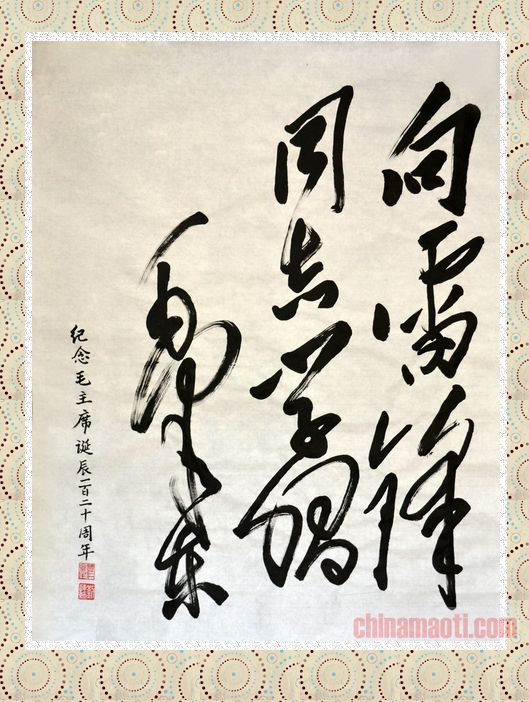 向雷锋
同志学习
毛泽东
纪念毛主席诞辰一百二十周年
chinamaoti.com